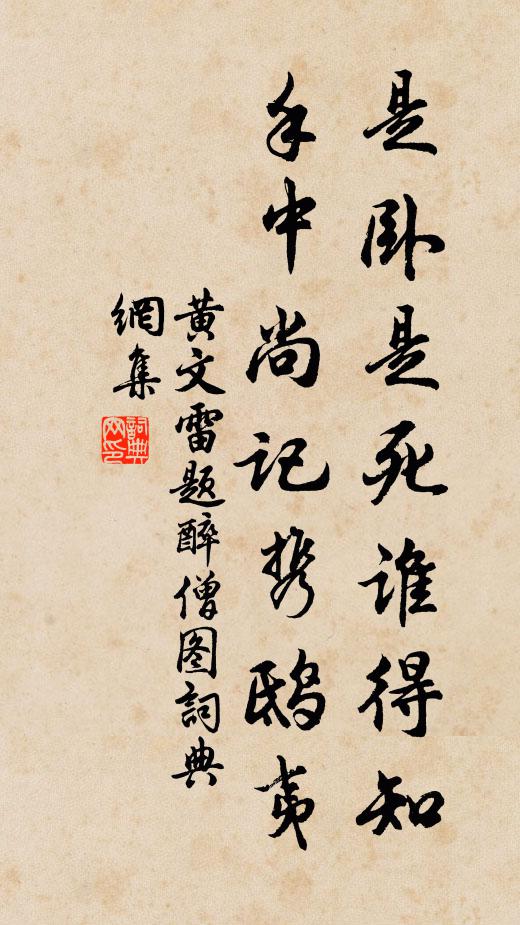 是卧是死谁得知
手中尚记携鸱夷
黄文雷题醉僧图词典
網集
詞典网印